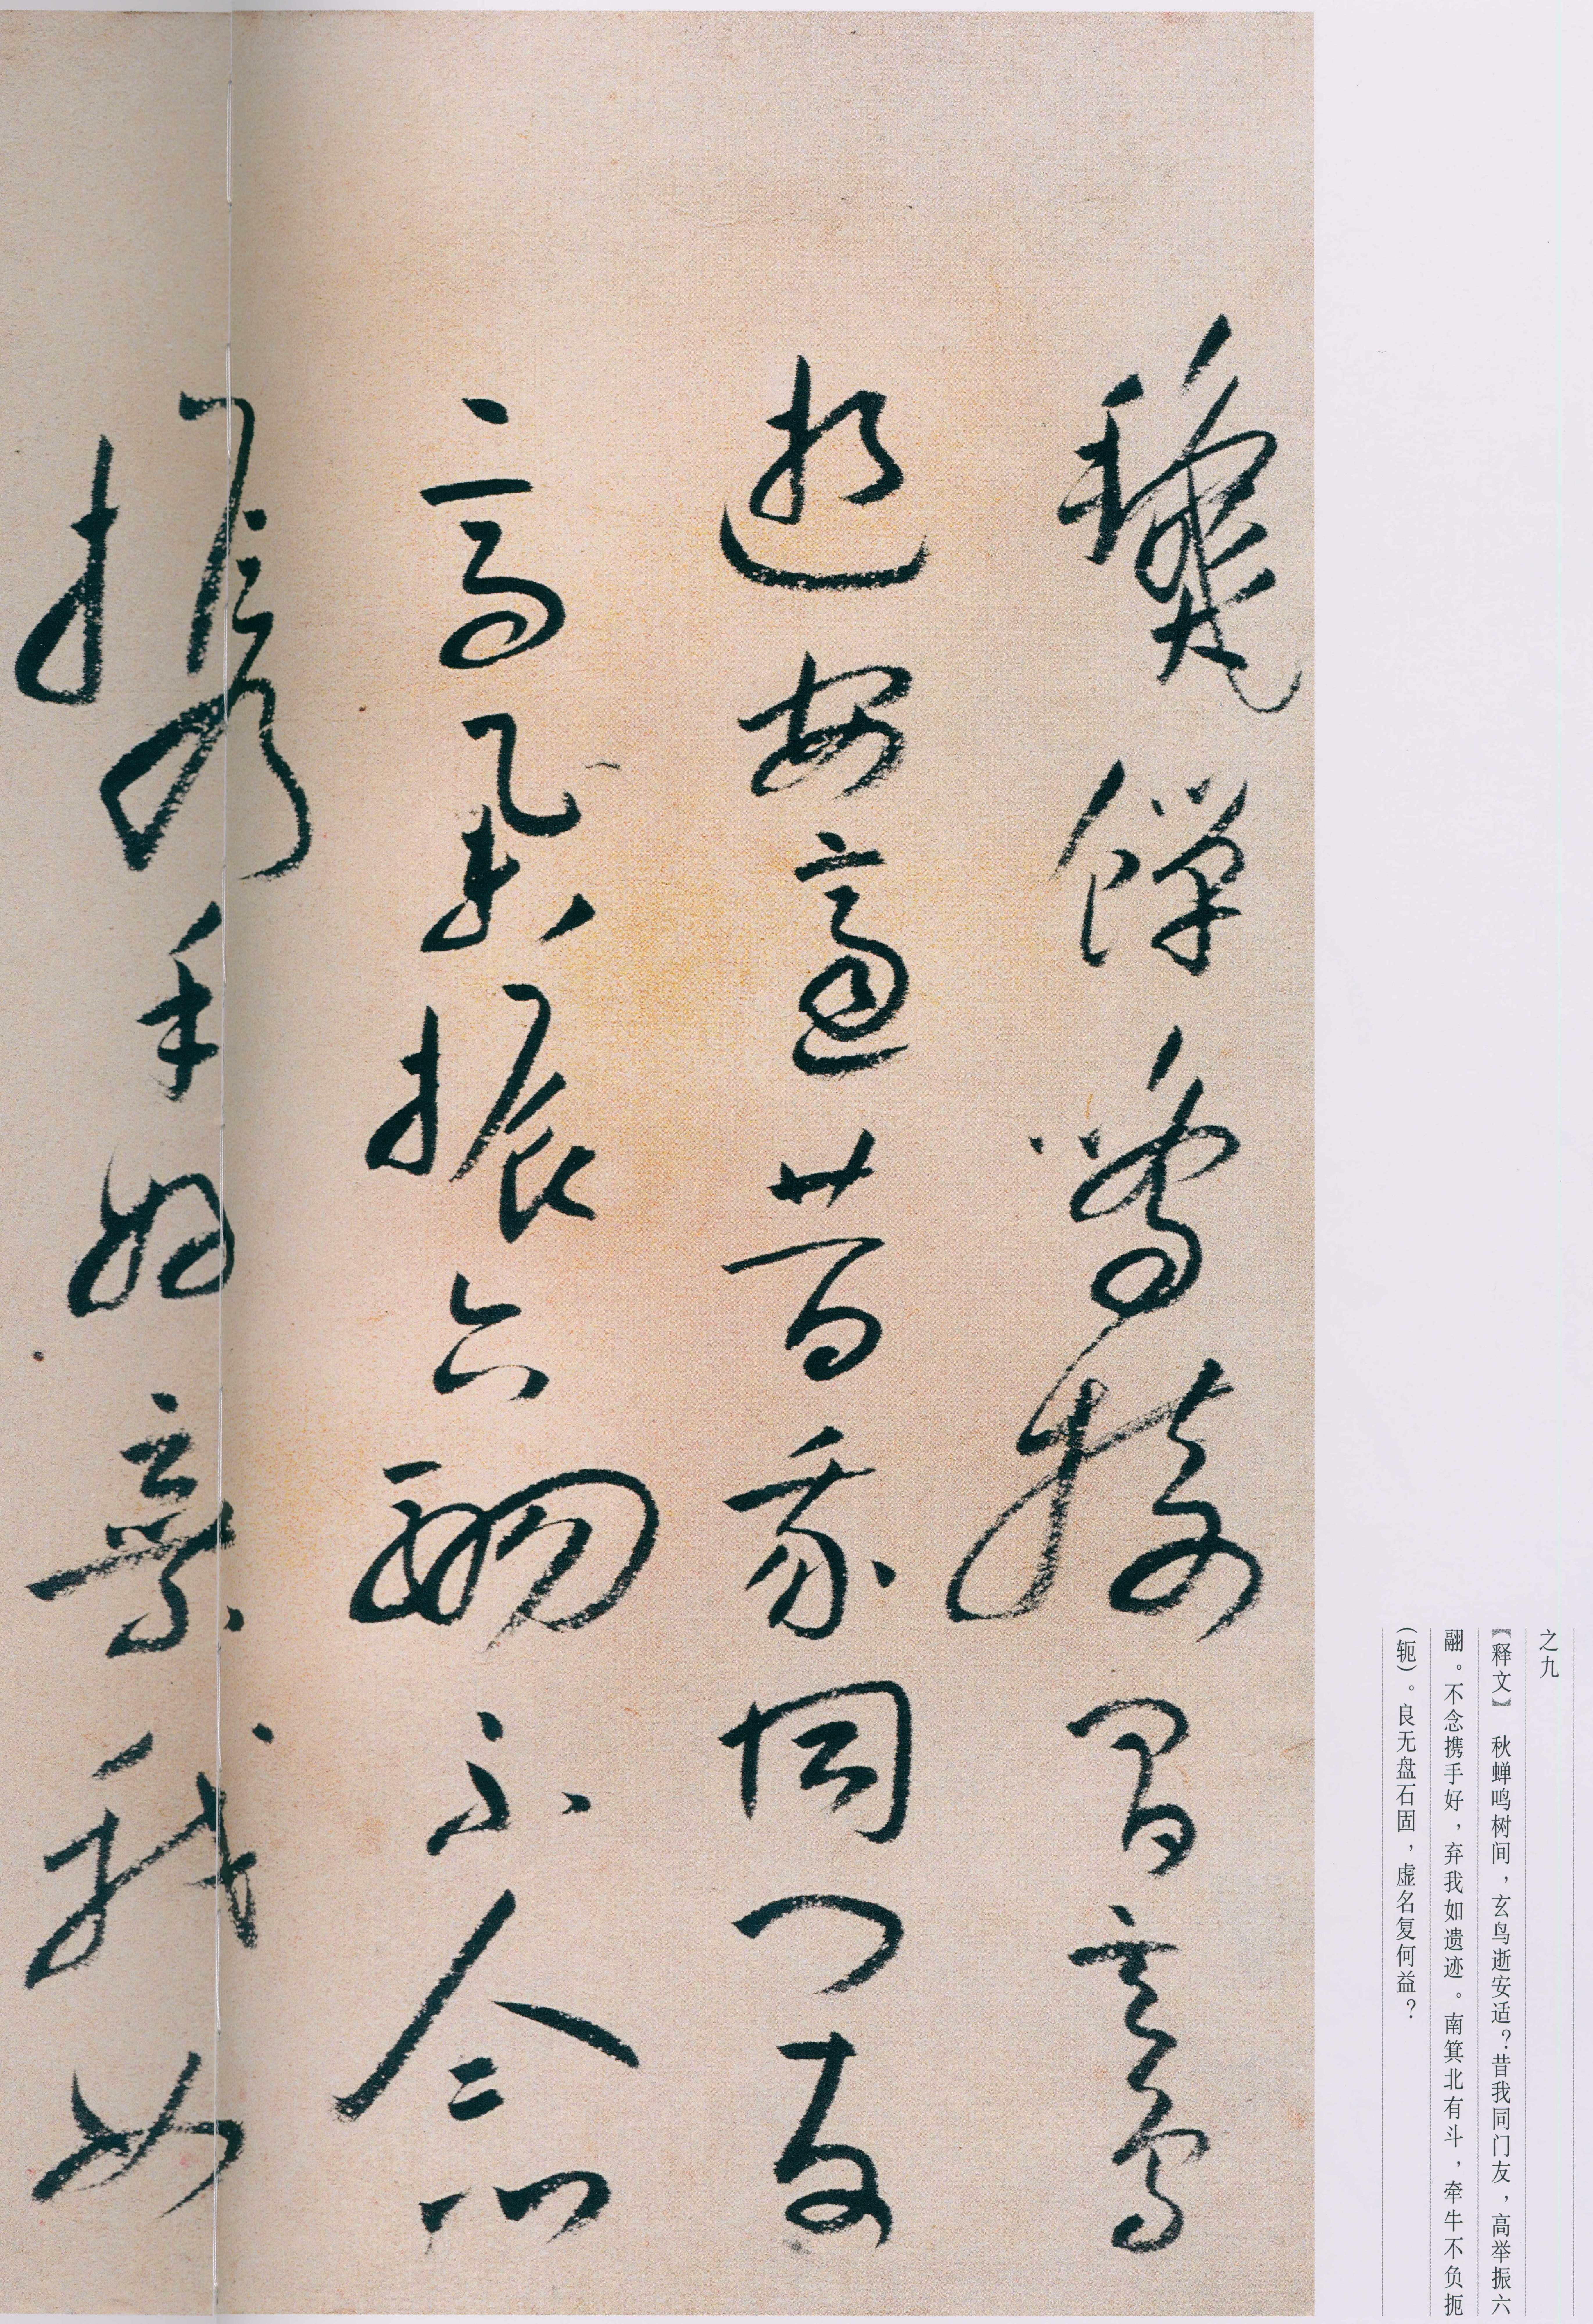 之九
【释文】 秋蝉鸣树间，玄鸟逝安适？昔我同门友，高举振六
翮。不念携手好，弃我如遗迹。南箕北有斗，牵牛不负扼
（轭）。良无盘石固，虚名复何益？
秋蟬鳴樹間玄鳥
逝安適昔我同門友
高舉振六翮不念
攜手好棄我如